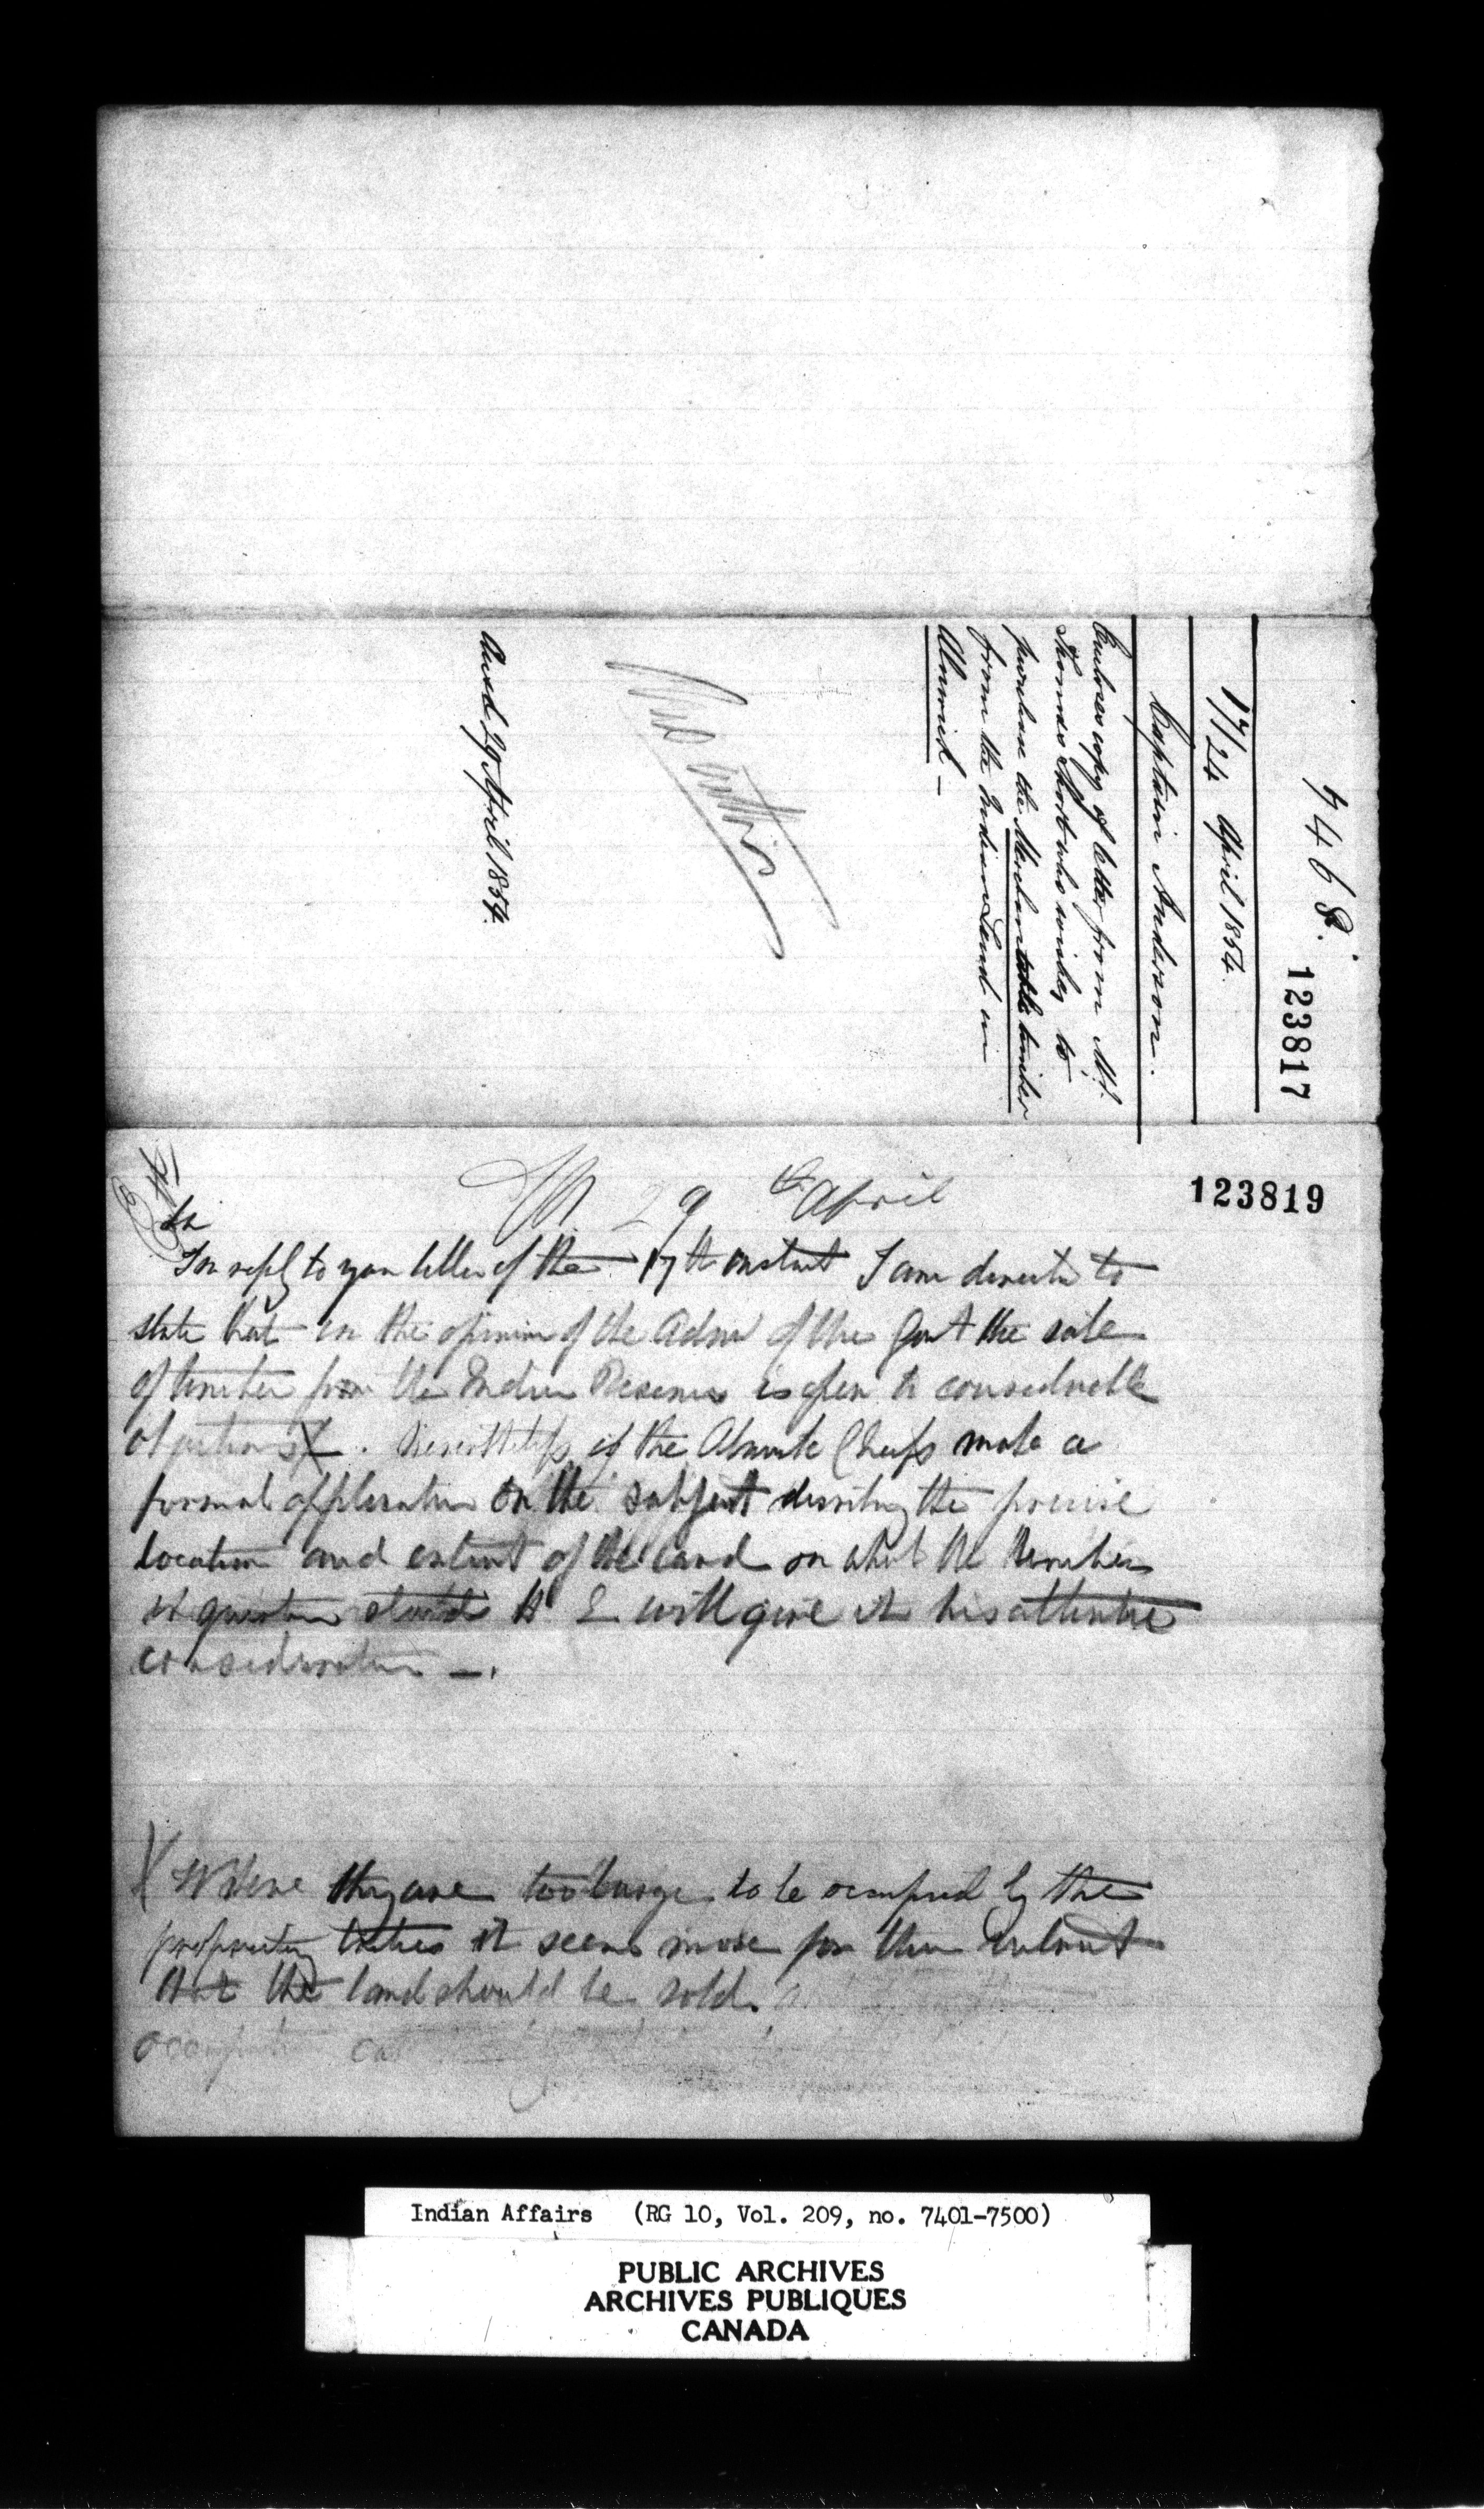 7468.
123817
17/24 April 1854.
Captain Anderson.
Encloses copy of letter from Mr.
Thomas Short who wishes to
purchase the Merchantable timber
from the Indian Land in
Alnwick —
Ansd 29 April 1854.
123819
29th April
Sir
In reply to your letter of the 17th instant I am directed to
state that in the opinion of the Admr of the Govt the sale
of timber from the Indian Reserves is open to considerable
objections X. Nevertheless if the Alnwick Chiefs make a
formal application on the subject describing the precise
location and extent of the land on which the timber
in question stands H E will give it his attentive
consideration —.
X Where they are too large to be occupied by the
proprietary tribes it seems more for their interest
that the land should be sold.
Indian Affairs (RG 10, Vol. 209, no. 7401-7500)
PUBLIC ARCHIVES
ARCHIVES PUBLIQUES
CANADA